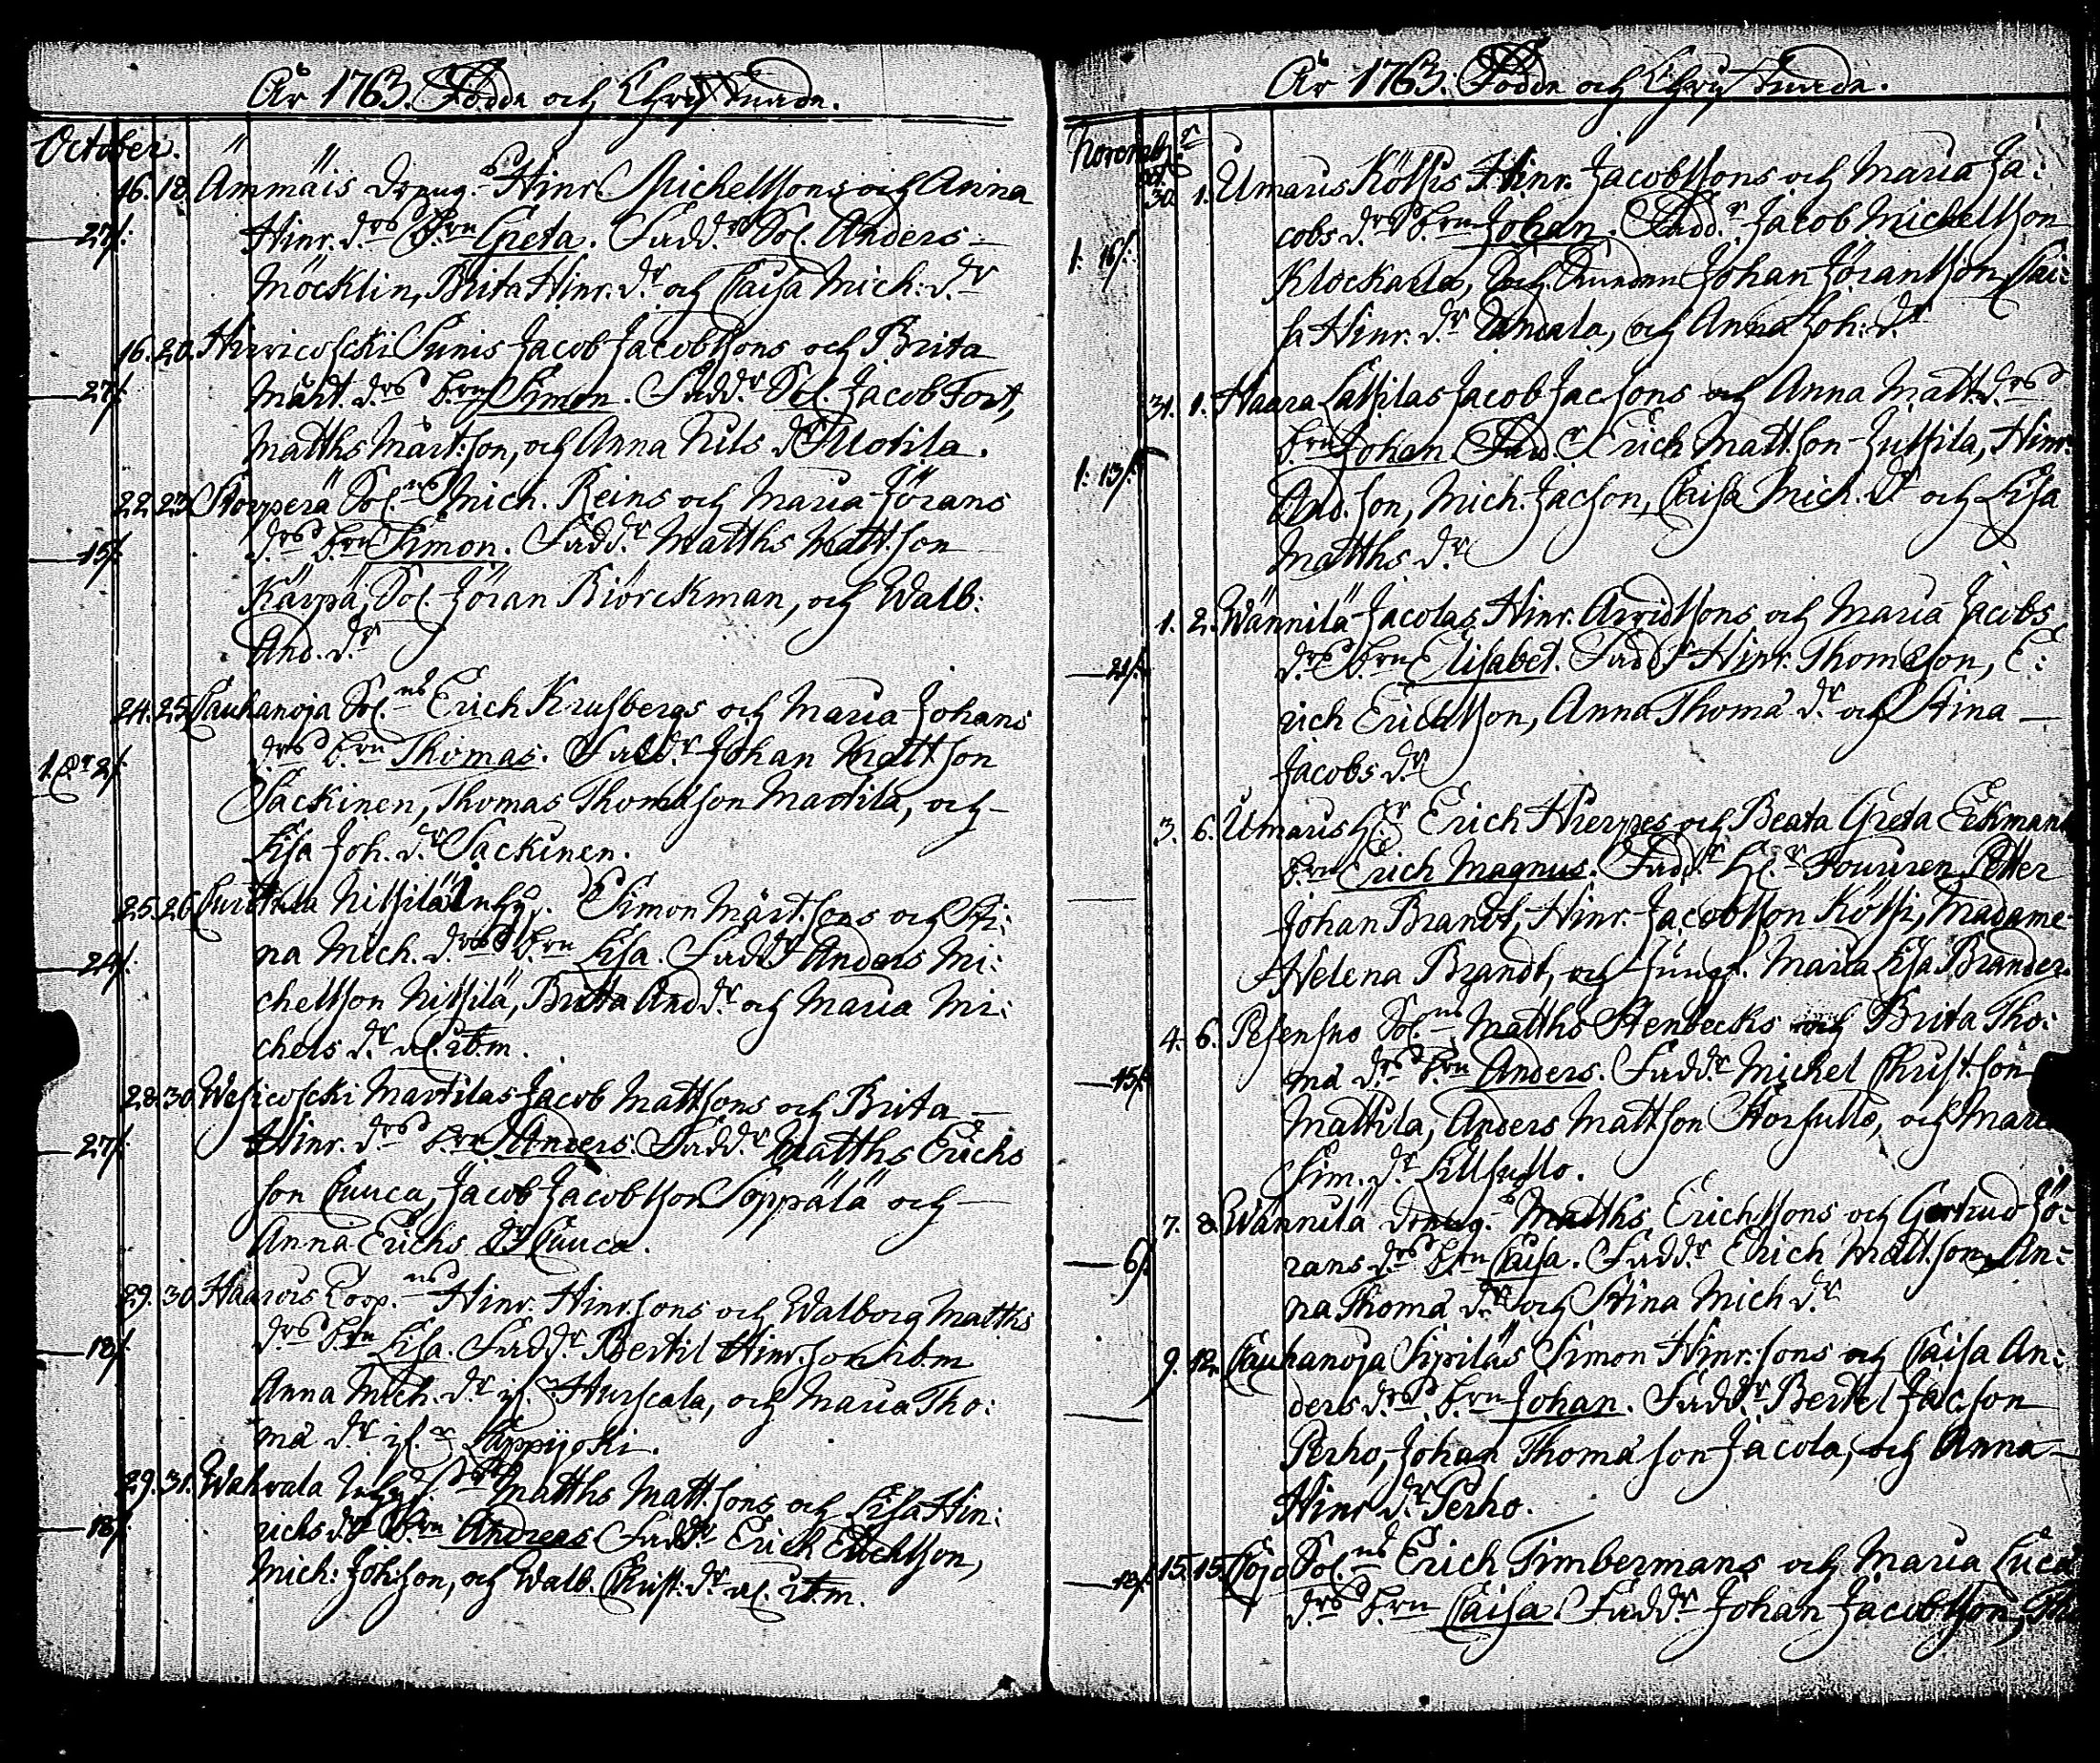 År 1763. Födde och Christnade.
October.
16. 18. Ämmäis dräng.s Hinr. Michelssons och Anna
27/: Hinr. d:rs b:rn Greta. Fadd:r Sol. Anders
Möcklin, Brita Hinr. d:r och Caisa Mich: d:r
16. 20. Hirvicoscki Sunis Jacob Jacobssons och Brita
27/: Märt. d:rs b:rn Simon. Fadd:r Sol. Jacob Fort,
Matths Märt:son, och Anna Nils d:r Uotila.
22. 23. Storperä Sol:ns Mich. Reins och Maria Jörans
15/: d:rs b:rn Simon. Fadd:r Matths Matt:son
Kärpä, Sol. Jöran Biörckman, och Walb:
And. d:r
24. 25. Cauhanoja Sol:ns Erich Krusbergs och Maria Johans
1. 2/: d:rs b:rn Thomas. Fadd:r Johan Mattson
Säckinen, Thomas Thomæson Martila, och
Lisa Joh. d:r Säckinen.
25. 26. Nissilä Inhys. Simon Märt:sons och Sti:
24/: na Mich. d:rs b:rn Lisa. Fadd:r Anders Mi:
chelsson Nissilä, Britta And d:r och Maria Mi:
chels d:r al. ib:m.
28. 30. Wesicoscki Martilas Jacob Mattsons och Brita
27/: Hinr. d:rs b:rn Anders. Fadd:r Matths Erichs
son Cauca, Jacob Jacobsson Soppälä och
Anna Erichs d:r Cauca.
29. 30. Haarois Torp:ns Hinr. Hinr:sons och Walborg Matths
18/: d:rs b:rn Lisa. Fadd:r Bertil Hinr:son ib:m
Anna Mich. d:r Hurscala, och Maria Tho:
mæ d:r Läppijoki.
29. 31. Wahvala Inhys. Matths Matt:sons och Lisa Hin:
18/: richs d:rs b:rn Andreas. Fadd:r Erich Erichsson,
Mich: Joh:son, och Walb. Christ: d:r al. ib:m.
År 1763. Födde och Christnade.
Novemb:r
30. 1. Umaris Kölssis Hinr. Jacobssons och Maria Ja:
cobs d:rs b:rn Johan. Fadd:r Jacob Michelsson
1. 16/: Klockarla, Johan Jöransson, Cai:
sa Hinr. d:r och Anna Joh: d:r
31. 1. Haara Lassilas Jacob Jac:sons och Anna Matt. d:rs
b:rn Johan. Fad:r Erich Matt:son Jussila, Hinr.
1. 13/: And.son, Mich. Jacson, Caisa Mich. d:r och Lisa
Matths d:r
1. 2. Wännilä Jacolas Hinr. Arvidssons och Maria Jacobs
21/: d:rs b:rn Elisabet. Fadd:r Hinr. Thomæson, E:
rich Erichsson, Anna Thomæ d:r och Stina
Jacobs d:r
3. 6. Umaris H:r Erich Hierpes och Beata Greta Eckmans
b:rn Erich Magnus. Fadd:r H:r Fouriren Petter
Johan Brandt, Hinr. Jacobsson Kölssi, Madame
Helena Brandt, och Jungf. Maria Lisa Brander.
4. 6. Pesensuo Sol:ns Matths Stenbecks och Brita Tho:
15/: mæ d:rs b:rn Anders. Fadd:r Michel Christ:son
Mattila, Anders Mattson Horsullo, och Maria
Sim. d:r
7. 8. Wännilä dräng.s Matths Erichssons och Gertrud Jö:
6/: rans d:rs b:rn Caisa. Fadd:r Erich Matt:son, An:
na Thomæ d:r och Stina Mich d:r
9. 12. Cauhanoja Sipiläs Simon Hinr:sons och Caisa An:
ders d:rs b:rn Johan. Fadd:r Bertel Jacson
Perho, Johan Thomæson Jacola, och Anna
Hinr d:r Perho.
15. 15. Cojo Sol:ns Erich Timbermans och Maria Lucæ
d:rs b:rn Caisa. Fadd:r Johan Jacobsson,